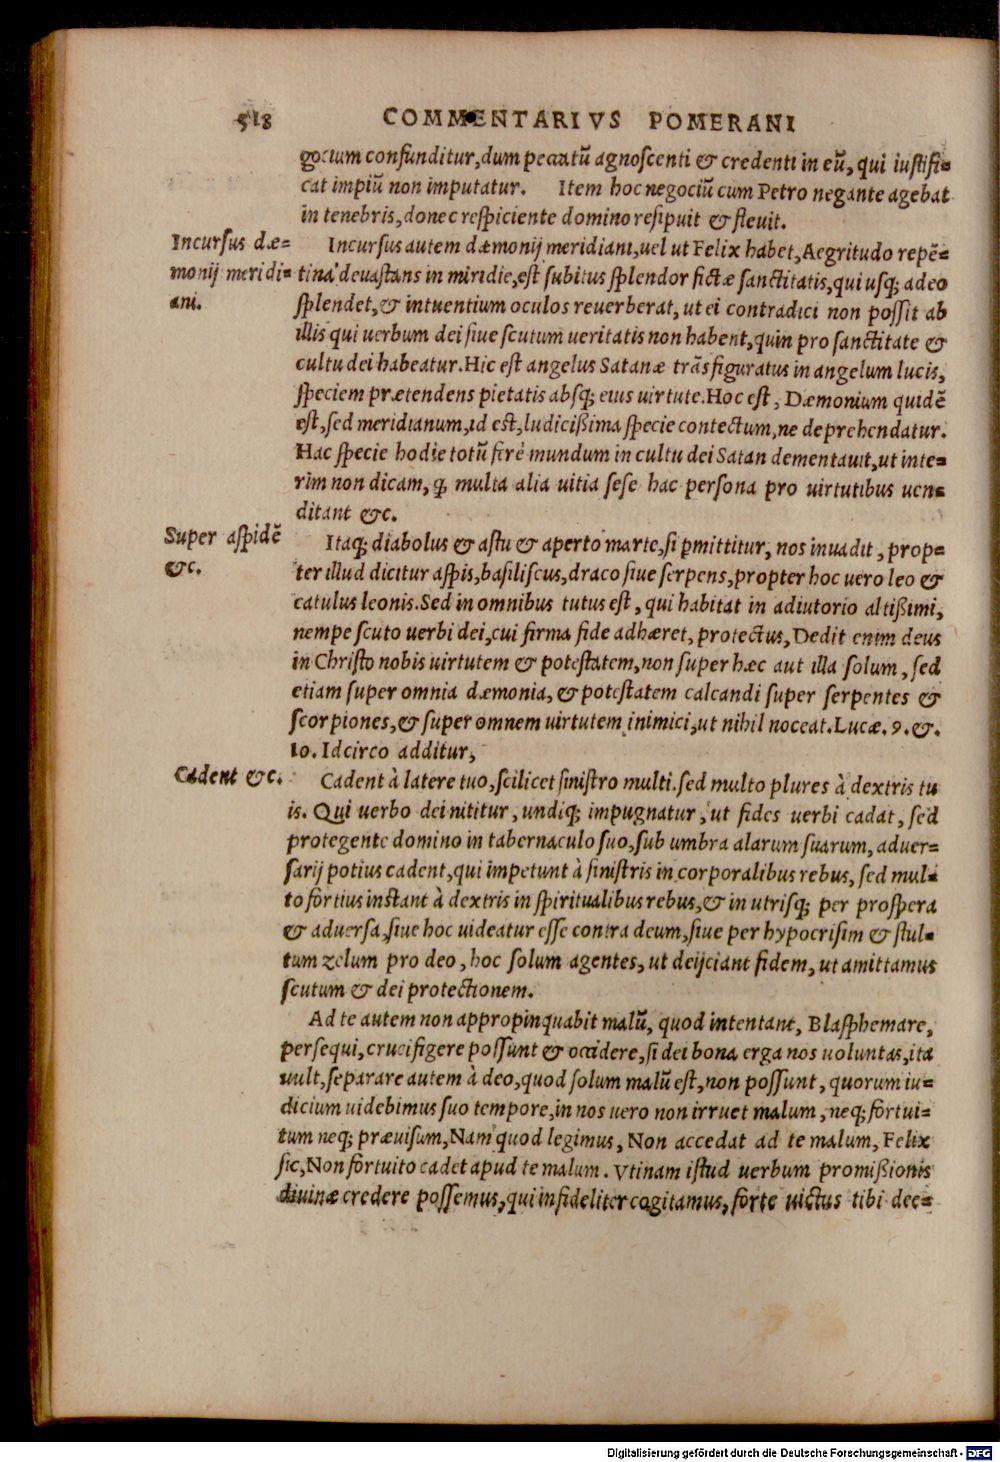 518 COMMENTARIVS POMERANI
gocium confunditur,dum peccatũ agnoſcenti & credenti in eũ, qui iuſtifi=
cat impiũ non imputatur. Item hoc negociũ cum Petro negante agebat
in tenebris,donec reſpiciente domino reſipuit & fleuit.
Incurſus dæ=
monij meridi=
ani.
Incurſus autem dæmonij meridiani,uel ut Felix habet,Aegritudo repẽ=
tina deuaſtans in miridie,eſt ſubitus ſplendor fictæ ſanctitatis,qui uſq; adeo
ſplendet,& intuentium oculos reuerberat, ut ei contradici non poſſit ab
illis qui uerbum dei ſiue ſcutum ueritatis non habent,quin pro ſanctitate &
cultu dei habeatur.Hic eſt angelus Satanæ trãsfiguratus in angelum lucis,
ſpeciem prætendens pietatis abſq; eius uirtute.Hoc eſt, Dæmonium quidẽ
eſt,ſed meridianum,id eſt,ludicißima ſpecie contectum,ne deprehendatur.
Hac ſpecie hodie totũ ferè mundum in cultu dei Satan dementauit,ut inte=
rim non dicam, q; multa alia uitia ſeſe hac perſona pro uirtutibus uen=
ditant &c.
Super aſpidẽ
&c.
Itaq; diabolus & aſtu & aperto marte,ſi pmittitur, nos inuadit, prop=
ter illud dicitur aſpis,baſiliſcus,draco ſiue ſerpens,propter hoc uero leo &
catulus leonis.Sed in omnibus tutus eſt, qui habitat in adiutorio altißimi,
nempe ſcuto uerbi dei,cui firma fide adhæret, protectus, Dedit enim deus
in Chriſto nobis uirtutem & poteſtatem,non ſuper hæc aut illa ſolum, ſed
etiam ſuper omnia dæmonia, & poteſtatem calcandi ſuper ſerpentes &
ſcorpiones,& ſuper omnem uirtutem inimici,ut nihil noceat.Lucæ. 9. &.
10. Idcirco additur,
Cadent &c.
Cadent à latere tuo,ſcilicet ſiniſtro multi.ſed multo plures à dextris tu
is. Qui uerbo dei nititur, undiq; impugnatur, ut fides uerbi cadat, ſed
protegente domino in tabernaculo ſuo,ſub umbra alarum ſuarum, aduer=
ſarij potius cadent,qui impetunt à ſiniſtris in corporalibus rebus, ſed mul=
to fortius inſtant à dextris in ſpiritualibus rebus,& in utriſq; per proſpera
& aduerſa,ſiue hoc uideatur eſſe contra deum,ſiue per hypocriſim & ſtul=
tum zelum pro deo, hoc ſolum agentes, ut deijciant fidem, ut amittamus
ſcutum & dei protectionem.
Ad te autem non appropinquabit malũ, quod intentant, Blaſphemare,
perſequi,crucifigere poſſunt & occidere,ſi dei bona erga nos uoluntas,ita
uult,ſeparare autem à deo,quod ſolum malũ eſt,non poſſunt, quorum iu=
dicium uidebimus ſuo tempore,in nos uero non irruet malum, neq; fortui=
tum neq; præuiſum,Nam quod legimus, Non accedat ad te malum, Felix
ſic,Non fortuito cadet apud te malum. Vtinam iſtud uerbum promißionis
diuinæ credere poſſemus,qui infideliter cogitamus, forte uictus tibi dee=
Digitalisierung gefördert durch die Deutsche Forschungsgemeinschaft - DFG